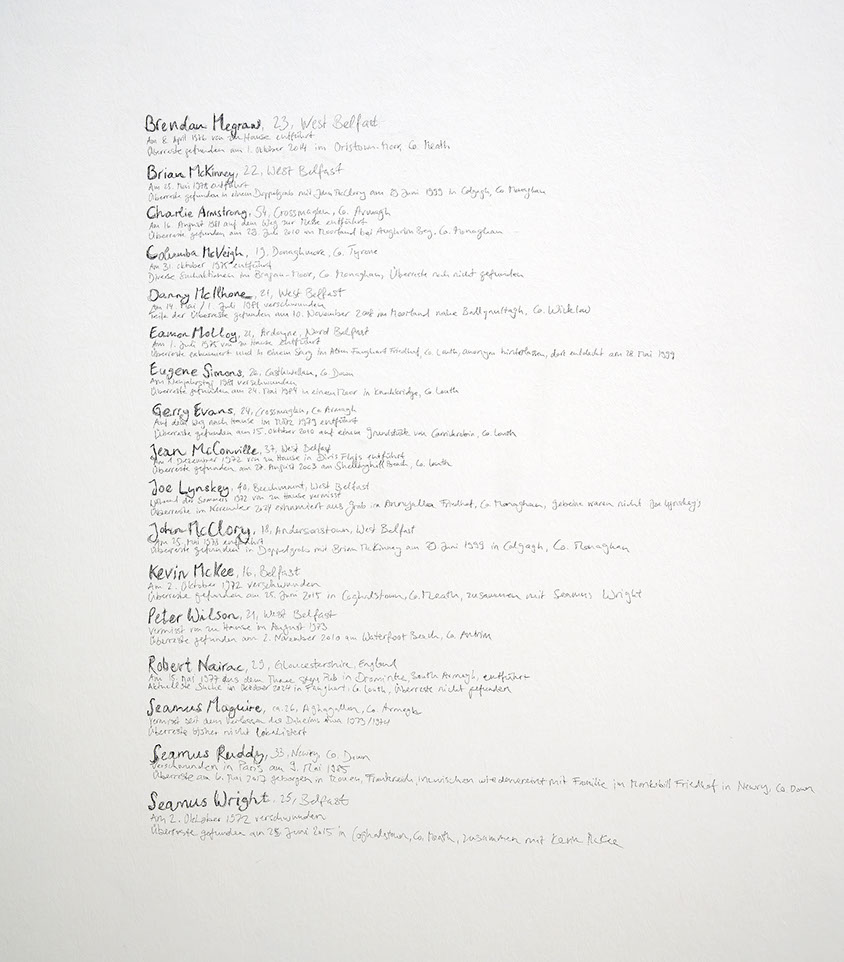 Brendan Megraw, 23, West Belfast
Am 8. April 1978 von zu Hause entführt
Überreste gefunden am 1. Oktober 2014 im Oristown-Moor, Co. Meath
Brian McKinney, 22, West Belfast
Am 25. Mai 1978 entführt
Überreste gefunden in einem Doppelgrab mit John McClory am 29 Juni 1999 in Colgagh, Co. Monaghan
Charlie Armstrong, 54, Crossmaglen, Co. Armagh
Am 16. August 1981 auf dem Weg zur Messe entführt
Überreste gefunden am 28. Juli 2010 im Moorland bei Aughrim Beg, Co. Monaghan
Columba McVeigh, 19, Donaghmore, Co. Tyrone
Am 31. Oktober 1975 entführt
Diverse Suchaktionen im Bragan-Moor, Co. Monaghan, Überreste noch nicht gefunden
Danny McIlhone, 21, West Belfast
Am 14. Mai / 1. Juli 1981 verschwunden
Teile der Überreste gefunden am 10. November 2008 im Moorland nahe Ballynultagh, Co. Wicklow
Eamon Molloy, 21, Ardoyne, Nord Belfast
Am 1. Juli 1975 von zu Hause entführt
Überreste exhumiert und in einem Sarg im Alten Faughart Friedhof, Co. Louth, anonym hinterlassen, dort entdeckt am 28 Mai 1999
Eugene Simons, 26, Castlewellan, Co. Down
Am Neujahrstag 1981 verschwunden
Überreste gefunden am 24. Mai 1984 in einem Moor in Knockbridge, Co. Louth
Gerry Evans, 24, Crossmaglen, Co Armagh
Auf dem Weg nach Hause im März 1979 entführt
Überreste gefunden am 15. Oktober 2010 auf einem Grundstück von Carrickrobin, Co. Louth
Jean McConville, 37, West Belfast
Am 1. Dezember 1972 von zu Hause in Divis Flats entführt
Überreste gefunden am 27. August 2003 am Shellinghill Beach, Co. Louth
Joe Lynskey, 40, Beechmount, West Belfast
Während des Sommers 1972 von zu Hause vermisst
Überreste im November 2024 exhumiert aus Grab in Annyalla Friedhof, Co. Monaghan, Gebeine waren nicht Joe Lynskeys
John McClory, 18, Andersonstown, West Belfast
Am 25. Mai 1978 entführt
Überreste gefunden in Doppelgrab mit Brian McKinney am 29 Juni 1999 in Colgagh, Co. Monaghan
Kevin McKee, 16, Belfast
Am 2. Oktober 1972 verschwunden
Überreste gefunden am 25. Juni 2015 in Coghalstown, Co. Meath, zusammen mit Seamus Wright
Peter Wilson, 21, West Belfast
Vermisst von zu Hause im August 1973
Überreste gefunden am 2. November 2010 am Waterfoot Beach, Co Antrim
Robert Nairac, 29, Gloucestershire, England
Am 15. Mai 1977 aus dem Three Steps Pub in Dromintee, South Armagh, entführt
Aktuellste Suche im Oktober 2024 in Faughart, Co. Louth, Überreste nicht gefunden
Seamus Maguire, ca. 26, Aghagallon, Co. Armagh
Vermisst seit dem Verlassen des Daheims etwa 1973/1974
Überreste bisher nicht lokalisiert
Seamus Ruddy, 33, Newry, Co. Down
Verschwunden in Paris am 9. Mai 1985
Überreste am 6. Mai 2017 geborgen in Rouen, Frankreich, inzwischen wiedervereint mit Familie im Monkshill Friedhof in Newry, Co. Down
Seamus Wright, 25, Belfast
Am 2. Oktober 1972 verschwunden
Überreste gefunden am 25 Juni 2015 in Coghalstown, Co. Meath, zusammen mit Kevin McKee